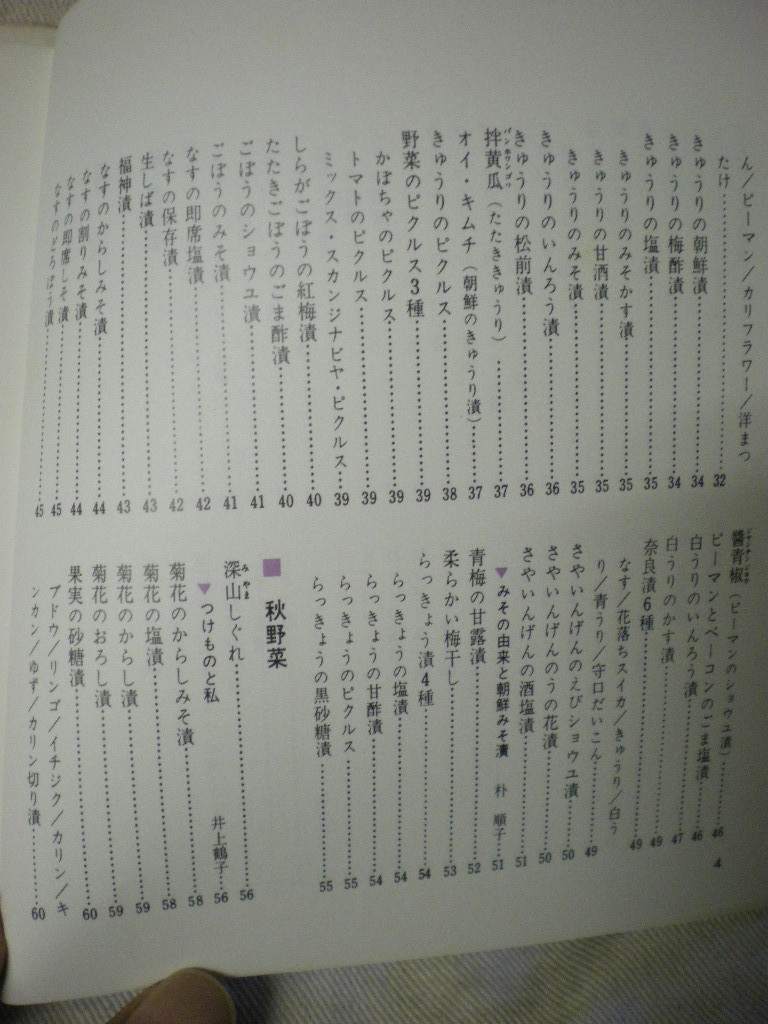 ん／ピーマン／カリフラワー／洋まつ
たけ……32
きゅうりの朝鮮漬……34
きゅうりの梅酢漬……34
きゅうりの塩漬……35
きゅうりのみそかす漬……35
きゅうりの甘酒漬……35
きゅうりのみそ漬……35
きゅうりのいんろう漬……36
きゅうりの松前漬……36
拌黄瓜（たたききゅうり）……37
バンホワンゴワ
オイ・キムチ（朝鮮のきゅうり漬）……37
きゅうりのピクルス……38
野菜のピクルス3種……39
かぼちゃのピクルス……39
トマトのピクルス……39
ミックス・スカンジナビヤ・ピクルス……39
しらがごぼうの紅梅漬……40
たたきごぼうのごま酢漬……40
ごぼうのショウユ漬……41
ごぼうのみそ漬……41
なすの即席塩漬……42
なすの保存漬……42
生しば漬……43
福神漬……43
なすのからしみそ漬……44
なすの割りみそ漬……44
なすの即席しそ漬……45
なすのどろぼう漬……45
醬青椒（ピーマンのショウユ漬）……46
ピーマンとベーコンのごま塩漬……46
白うりのいんろう漬……46
白うりのかす漬……47
奈良漬6種……49
なす／花落ちスイカ／きゅうり／白う
り／青うり／守口だいこん……49
さやいんげんのえびショウユ漬……50
さやいんげんのうの花漬……50
さやいんげんの酒塩漬……51
▼みその由来と朝鮮みそ漬　朴 順子……51
青梅の甘露漬……52
柔らかい梅干し……53
らっきょう漬4種……54
らっきょうの塩漬……54
らっきょうの甘酢漬……54
らっきょうのピクルス……55
らっきょうの黒砂糖漬……55
■秋野菜
深山しぐれ……56
みやま
▼つけものと私　井上鶴子……56
菊花のからしみそ漬……58
菊花の塩漬……58
菊花のからし漬……59
菊花のおろし漬……59
果実の砂糖漬……60
ブドウ／リンゴ／イチジク／カリン／キ
ンカン／ゆず／カリン切り漬……60